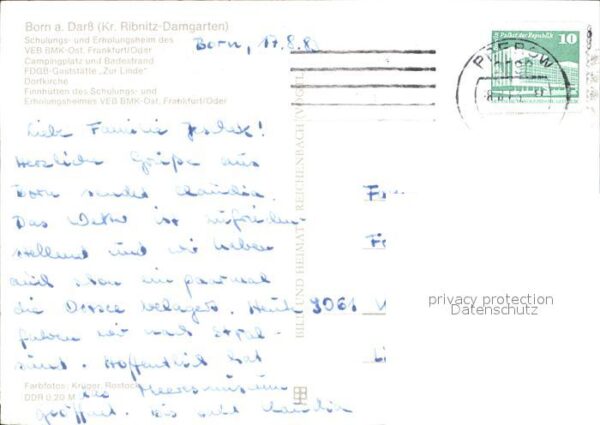 Born a. Darß (Kr. Ribnitz-Damgarten)
Schulungs- und Erholungsheim des
VEB BMK-Ost, Frankfurt/Oder
Campingplatz und Badestrand
FDGB-Gaststätte „Zur Linde"
Dorfkirche
Finnhütten des Schulungs- und
Erholungsheimes VEB BMK-Ost, Frankfurt/Oder
Born, 17.8.8
Palast der Republik 10
Liebe Familie !
Herzliche Grüße aus
Born sendet Claudia.
Das Wetter ist zufrieden-
stellend und wir haben
auch schon ein paar mal
die Ostsee belagert. Heute
fahren wir nach Stral-
sund. Hoffentlich hat
das Meeresmuseum
geöffnet. Bis bald Claudia
Farbfotos: Krüger, Rostock
DDR 0,20 M
BILD UND HEIMAT REICHENBACH (VOGTL)
9061
privacy protection
Datenschutz